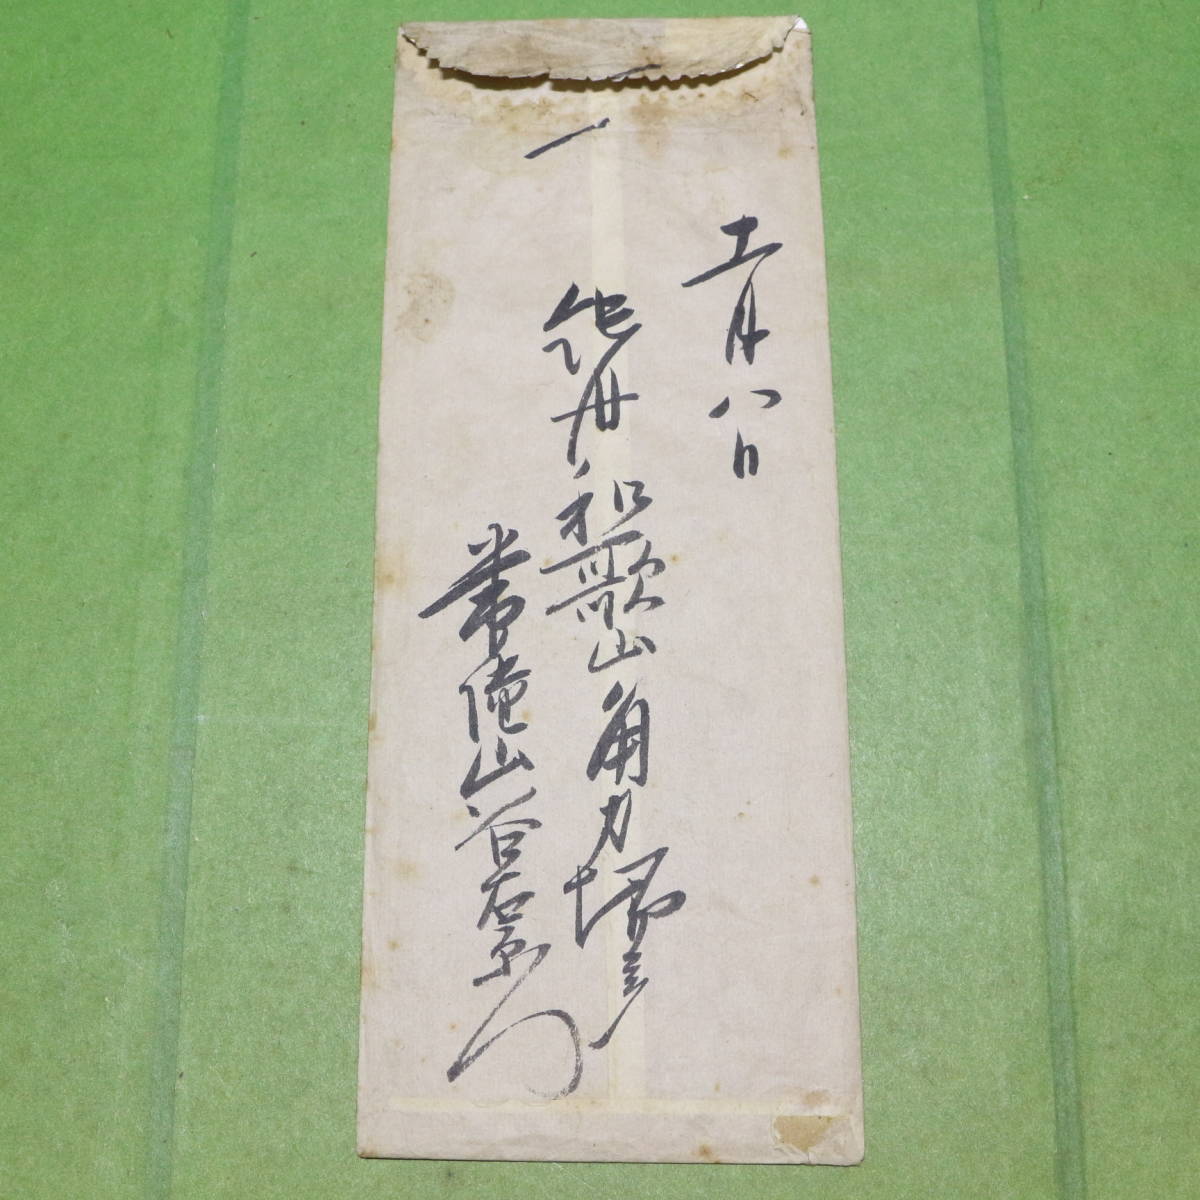 十一月八日
紀州和歌山角力場
常陸山谷右衛門